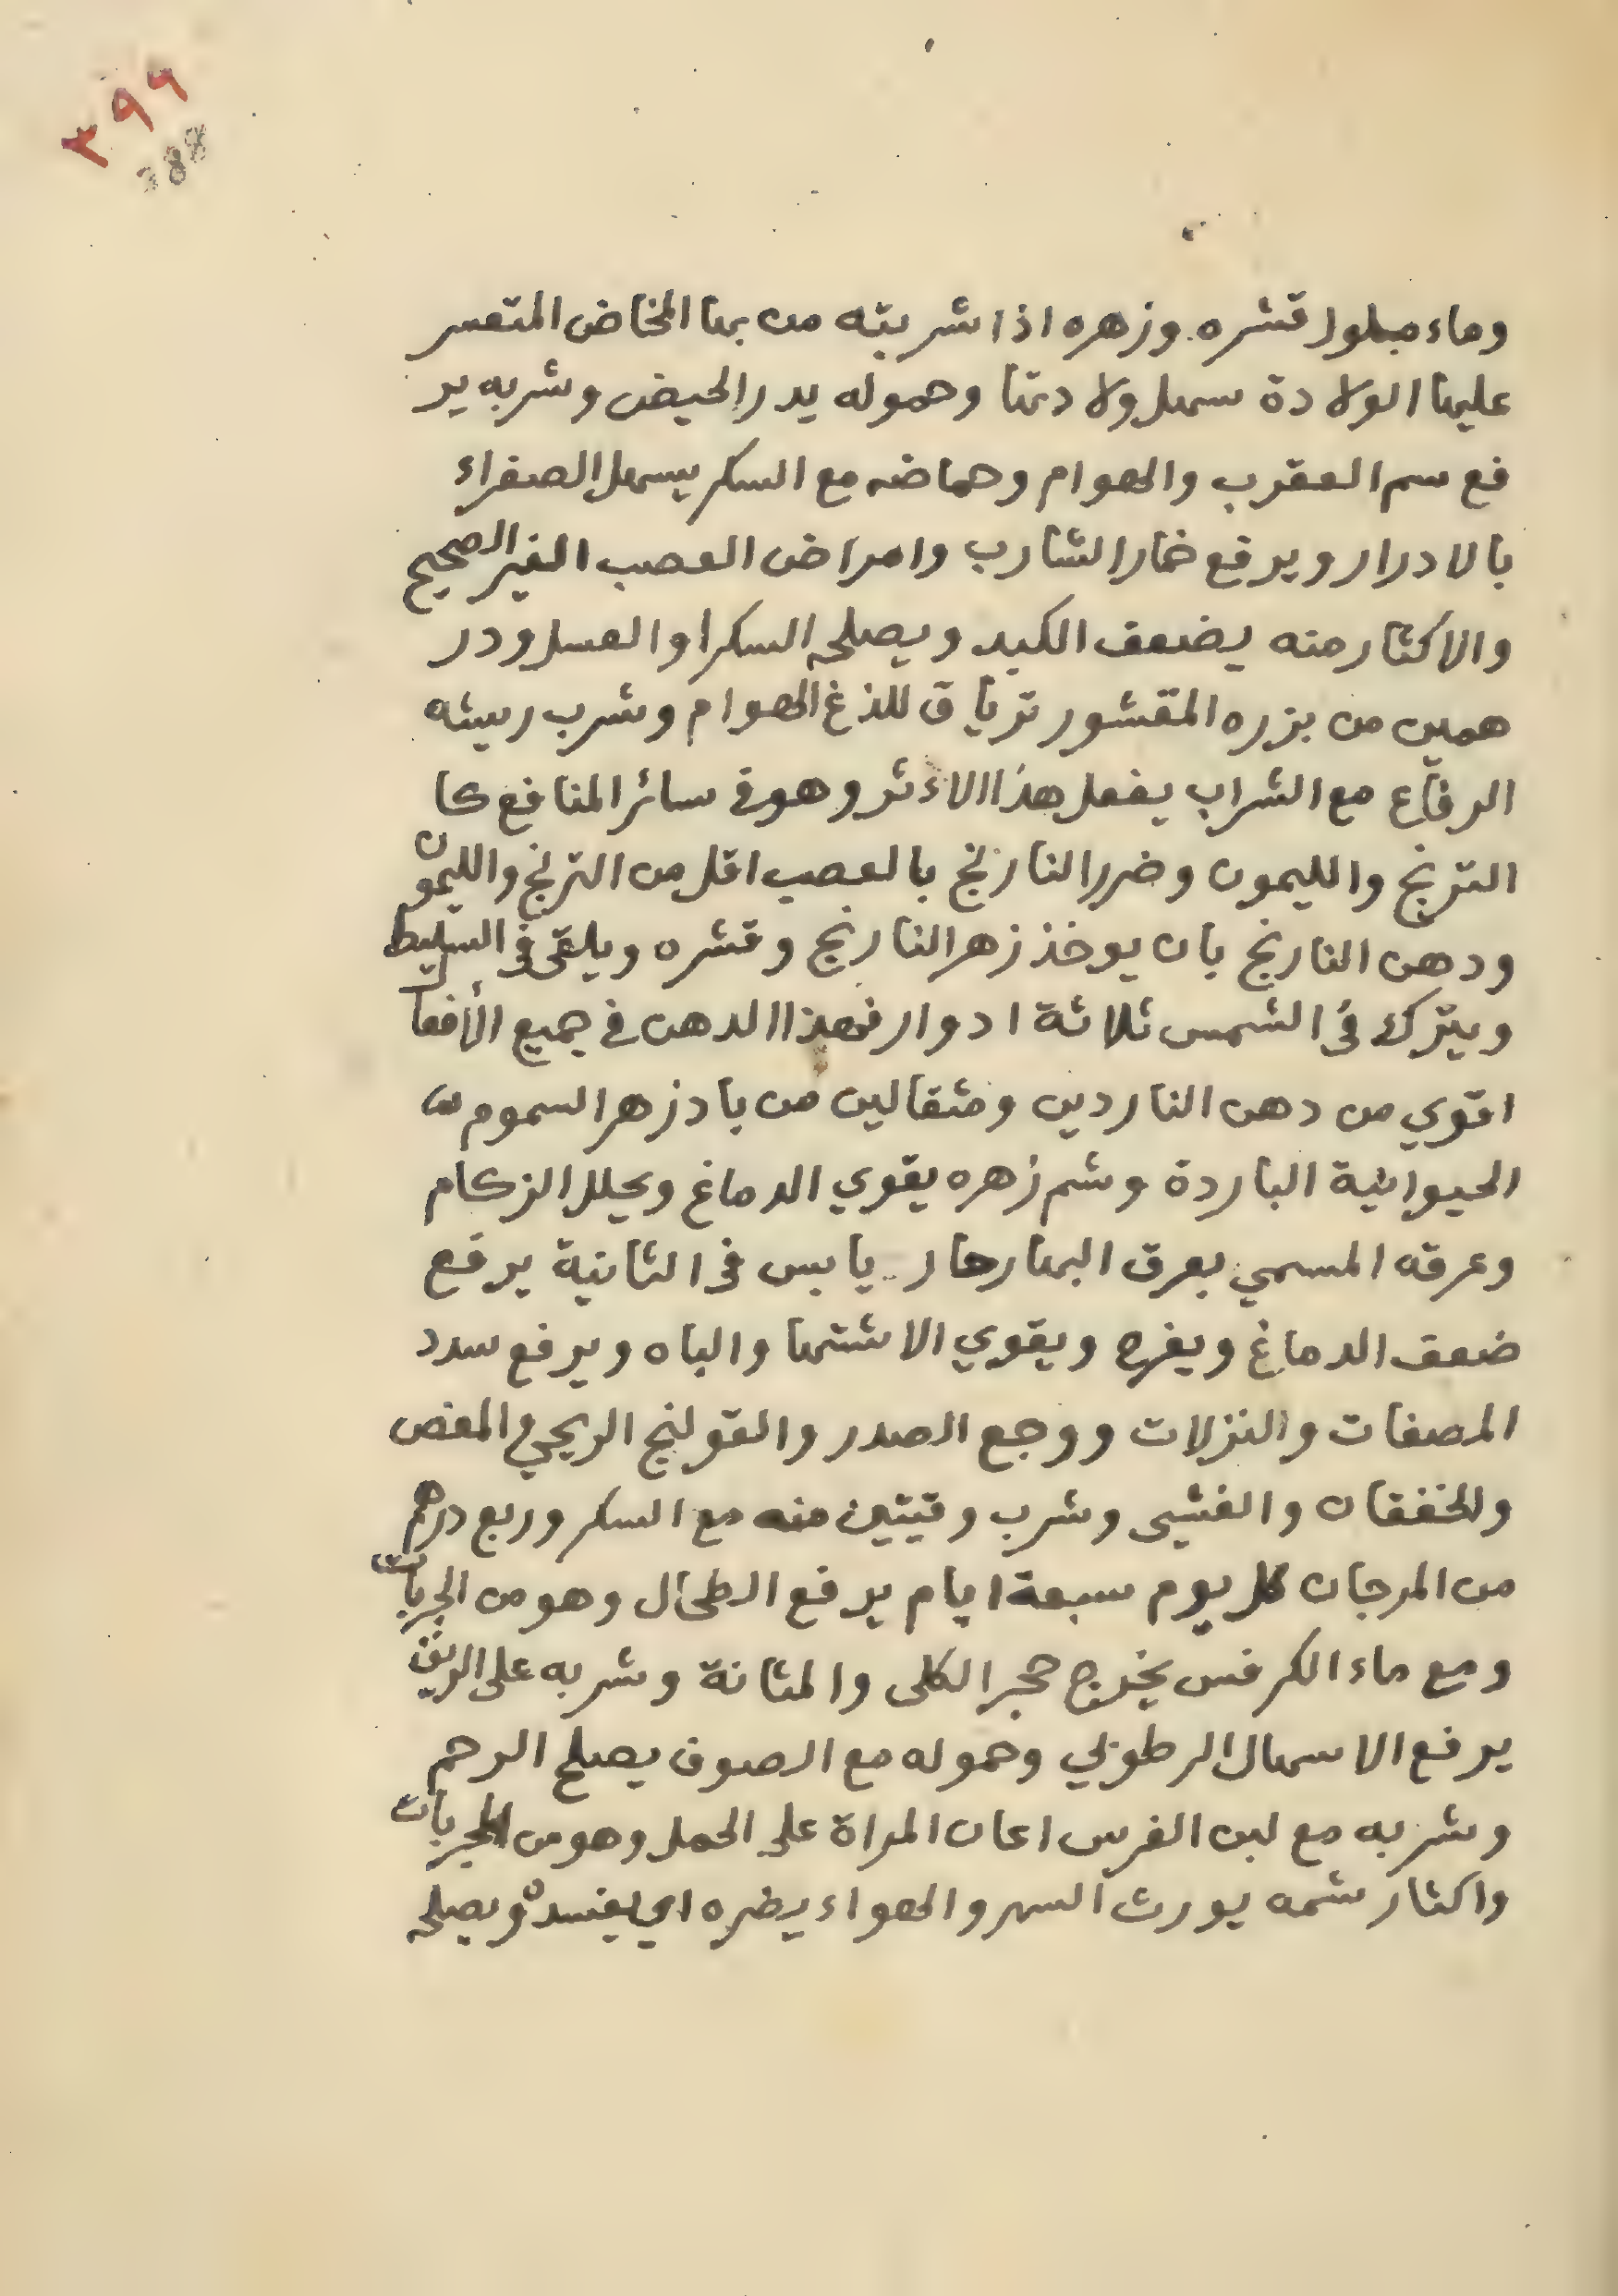 ٣٩٦
388
وماء مبلول قشره وزهره اذا شربته من بها المخاض المتعسر
عليها الولادة سهل ولادتها وحموله يدر الحيض وشربه ير
فع سم العقرب والهوام وحماضه مع السكر يسهل الصفراء
بالادرار ويرفع خمار الشارب وامراض العصب الغير الصحيح
والاكثار منه يضعف الكبد ويصلحه السكر او العسل ودر
همين من بزره المقشور ترياق للذغ الهوام وشرب ريشه
الرفاع مع الشراب يفعل هذا الاثر وهو في سائر المنافع كا
الترنج والليمون وضرر النارنج بالعصب اقل من الترنج والليمون
ودهن النارنج بان يوخذ زهر النارنج وقشره ويلقى في السليط
ويترك في الشمس ثلاثة ادوار فهذا الدهن في جميع الأفعا
اقوي من دهن الناردين ومثقالين من بادزهر السموم
الحيوانية الباردة وشم زهره يقوي الدماغ ويحلل الزكام
وعرقه المسمي بعرق البهار حار يابس في الثانية يرفع
ضعف الدماغ ويفرح ويقوي الاشتها والباه ويرفع سدد
المصفات والنزلات ووجع الصدر والقولنج الريحي والمغص
والخفقان والغشي وشرب وقيتين منه مع السكر وربع درهم
من المرجان كل يوم سبعة ايام يرفع الطحال وهو من المجربات
ومع ماء الكرفس يخرج حجر الكلى والمثانة وشربه على الريق
يرفع الاسهال الرطوبي وحموله مع الصوف يصلح الرحم
وشربه مع لبن الفرس اعان المراة على الحمل وهو من المجربات
واكثار شمه يورث السهر والهواء يضره اي يفسده ويصلحه